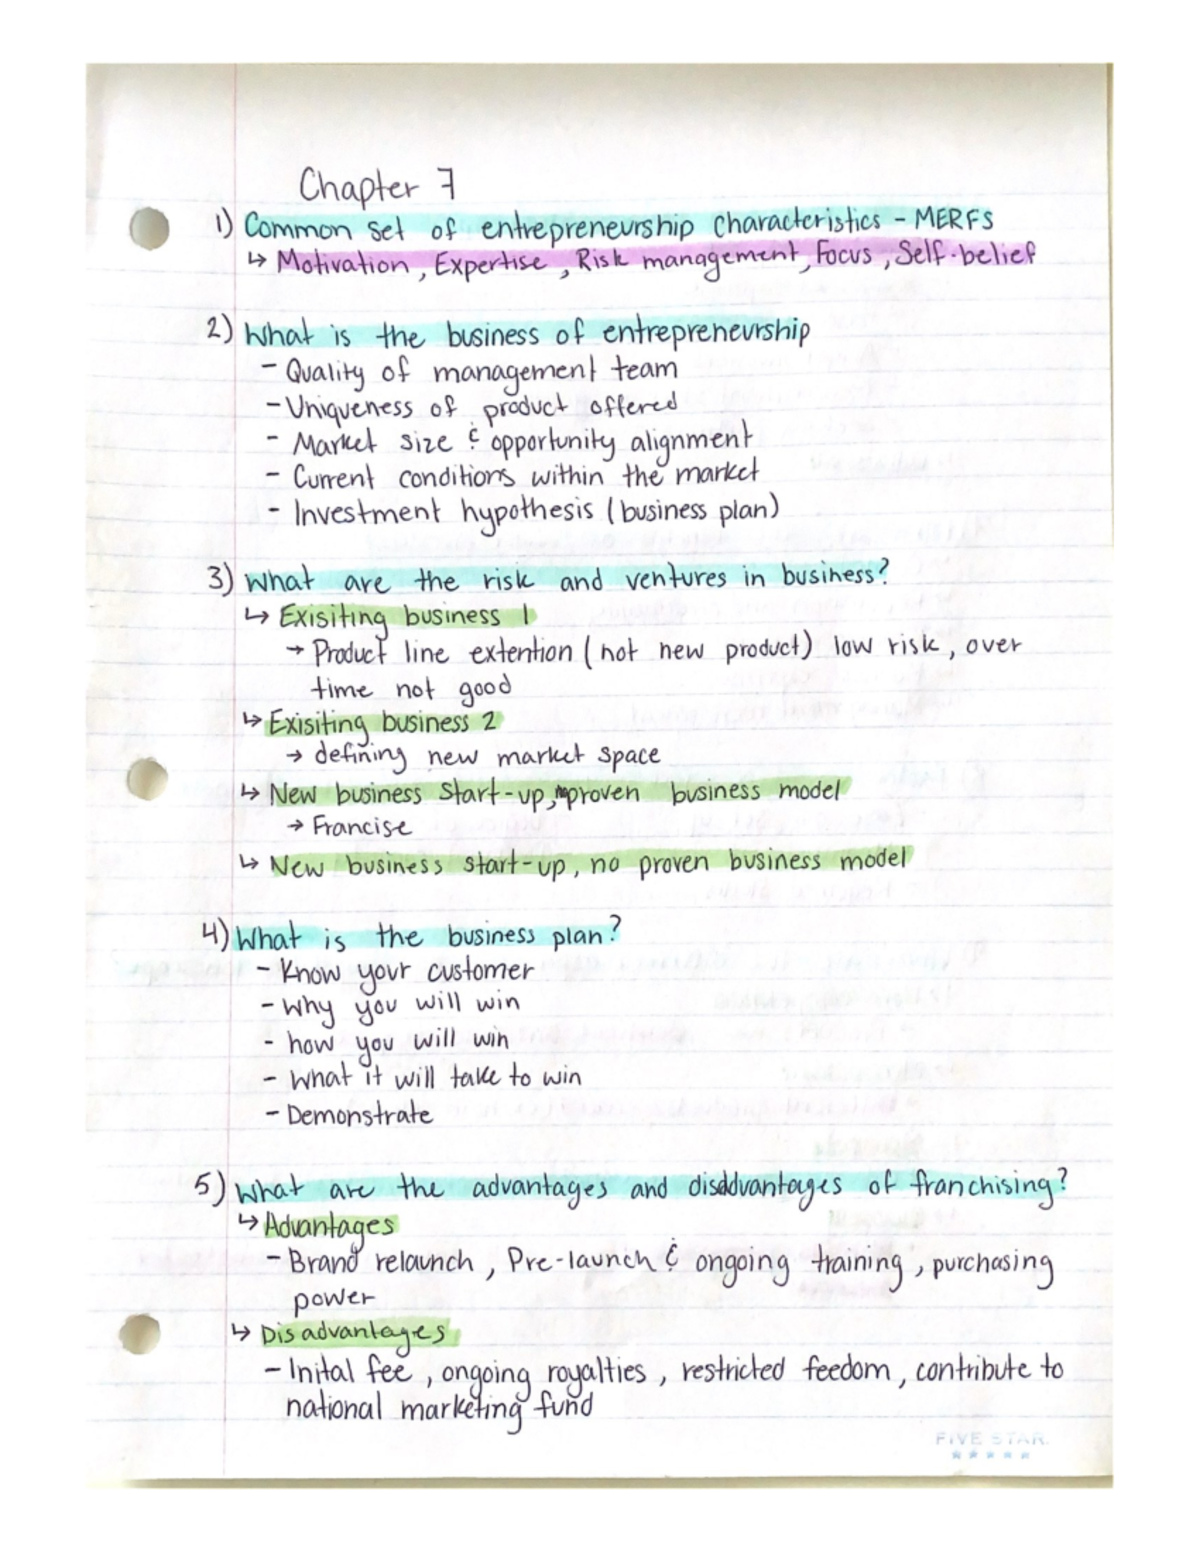 Chapter 7
1) Common set of entrepreneurship characteristics - MERFS
↳ Motivation, Expertise, Risk management, Focus, Self-belief
2) What is the business of entrepreneurship
- Quality of management team
- Uniqueness of product offered
- Market size & opportunity alignment
- Current conditions within the market
- Investment hypothesis (business plan)
3) What are the risk and ventures in business?
↳ Exisiting business 1
→ Product line extention (not new product) low risk, over
time not good
↳ Exisiting business 2
→ defining new market space
↳ New business start-up, proven business model
→ Francise
↳ New business start-up, no proven business model
4) What is the business plan?
- Know your customer
- Why you will win
- how you will win
- What it will take to win
- Demonstrate
5) What are the advantages and disadvantages of franchising?
↳ Advantages
- Brand relaunch, Pre-launch & ongoing training, purchasing
power
↳ Disadvantages
- Inital fee, ongoing royalties, restricted feedom, contribute to
national marketing fund
FIVE STAR.
★★★★★